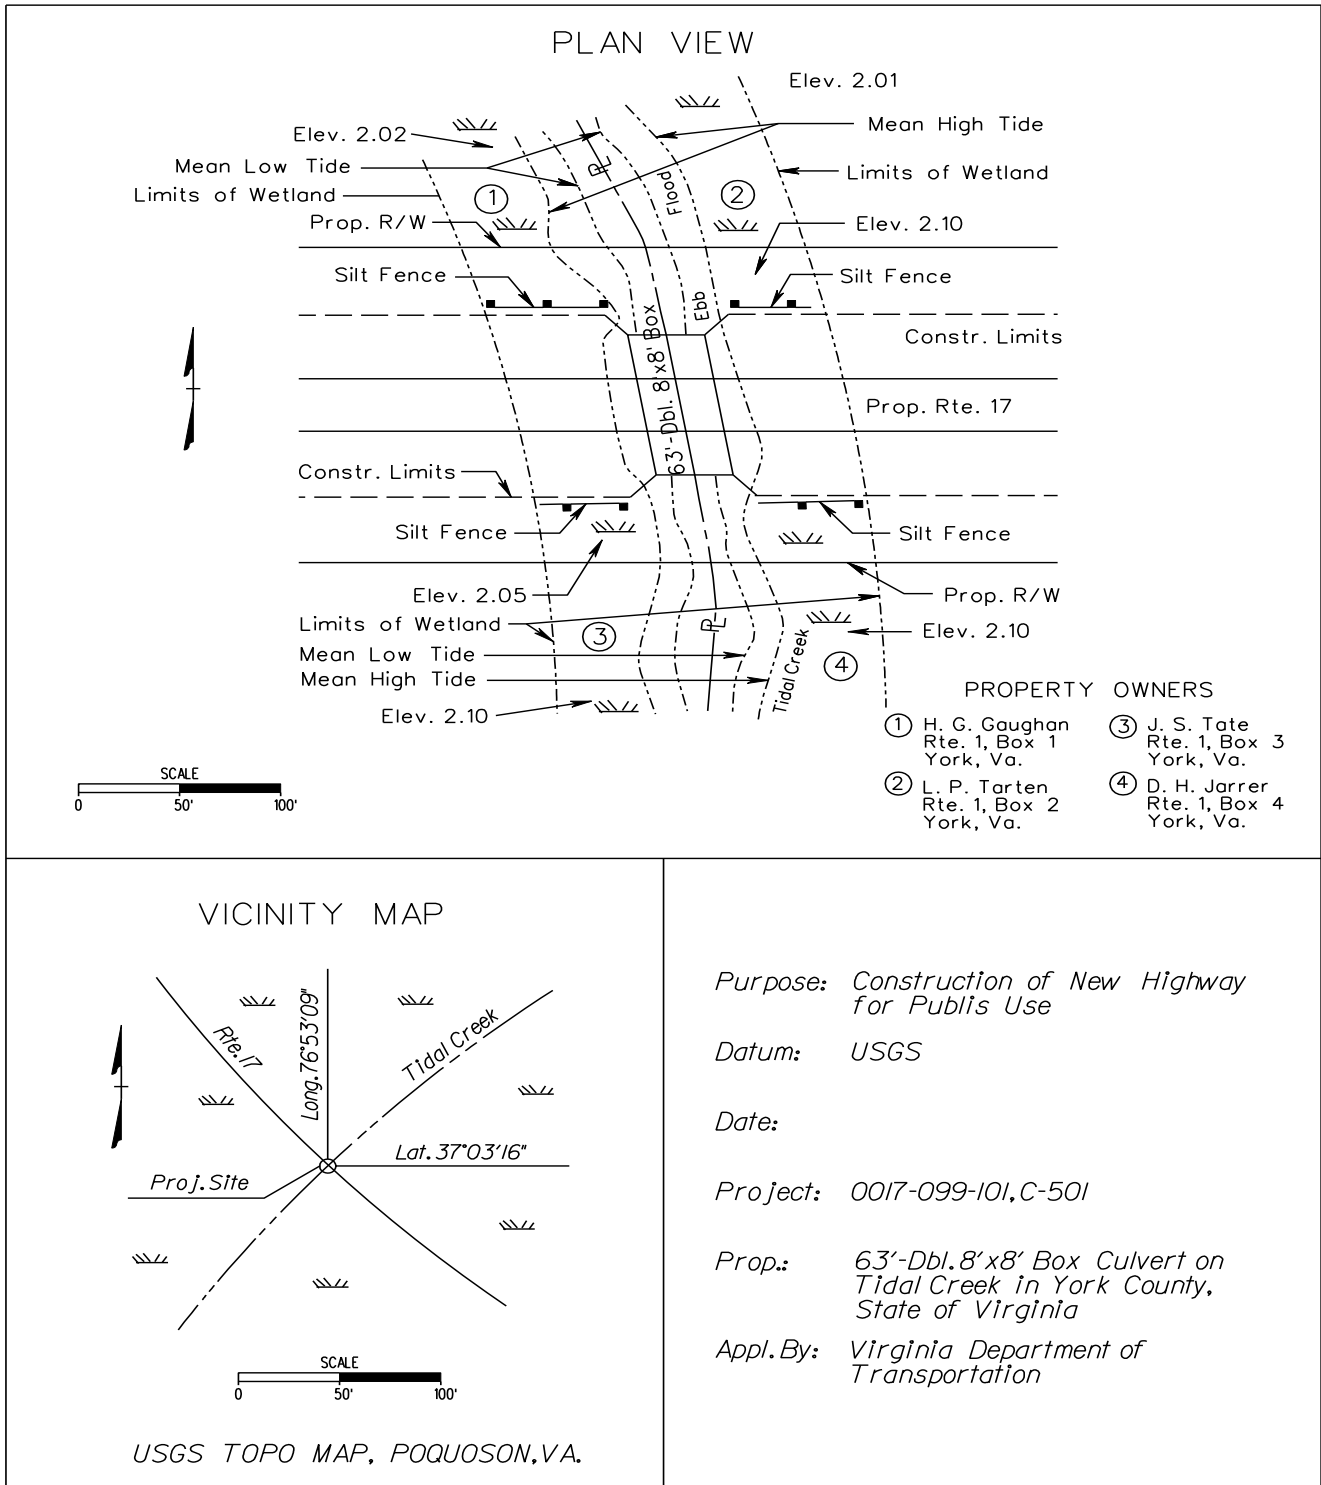 PLAN VIEW
Elev. 2.01
Elev. 2.02
Mean High Tide
Mean Low Tide
Limits of Wetland
Limits of Wetland
PL
Flood
1
2
Prop. R/W
Elev. 2.10
Silt Fence
Silt Fence
Ebb
63'-Dbl. 8'x8' Box
Constr. Limits
Prop. Rte. 17
Constr. Limits
Silt Fence
Silt Fence
Elev. 2.05
Prop. R/W
Limits of Wetland
3
PL
Elev. 2.10
Mean Low Tide
Tidal Creek
4
Mean High Tide
Elev. 2.10
PROPERTY OWNERS
1 H. G. Gaughan
Rte. 1, Box 1
York, Va.
2 L. P. Tarten
Rte. 1, Box 2
York, Va.
3 J. S. Tate
Rte. 1, Box 3
York, Va.
4 D. H. Jarrer
Rte. 1, Box 4
York, Va.
SCALE
0 50' 100'
VICINITY MAP
Rte. 17
Long. 76°53'09"
Tidal Creek
Lat. 37°03'16"
Proj. Site
SCALE
0 50' 100'
USGS TOPO MAP, POQUOSON, VA.
Purpose: Construction of New Highway
for Publis Use
Datum: USGS
Date:
Project: 0017-099-101, C-501
Prop.: 63'-Dbl. 8'x8' Box Culvert on
Tidal Creek in York County,
State of Virginia
Appl. By: Virginia Department of
Transportation